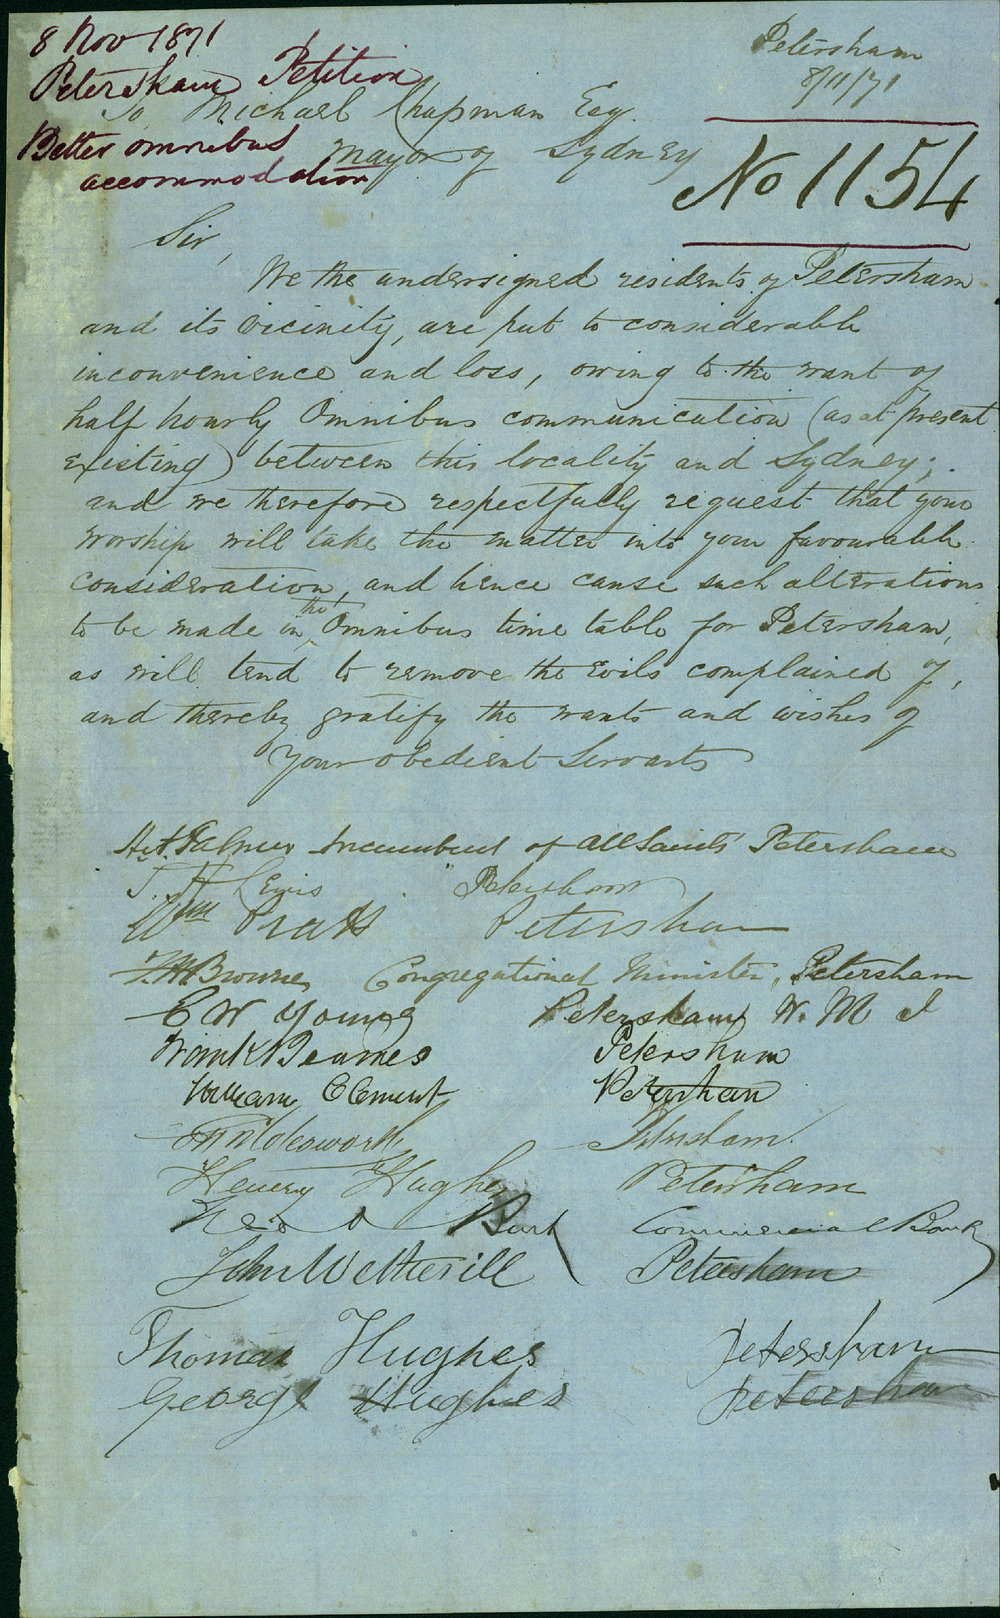 8 Nov 1871
Petersham Petition
Better omnibus
accommodation
Petersham
8/11/71
No 1154
To Michael Chapman Esq.
Mayor of Sydney
Sir,
We the undersigned residents of Petersham
and its vicinity, are put to considerable
inconvenience and loss, owing to the want of
half hourly Omnibus communication (as at present
existing) between this locality and Sydney;
and we therefore respectfully request that your
Worship will take the matter into your favourable
consideration, and hence cause such alterations
to be made in the Omnibus time table for Petersham,
as will tend to remove the evils complained of,
and thereby gratify the wants and wishes of
Your obedient Servants
H. A. Palmer Incumbent of All Saints' Petersham
J. Lewis " Petersham
Wm Pratt Petersham
Browne Congregational Minister, Petersham
C W Young Petersham W. M. I
Frank Beames Petersham
William Clement Petersham
Petersham.
Henery Hughes Petersham
Burt Commercial Bank
John Wetherill Petersham
Thomas Hughes Petersham
George Hughes Petersham